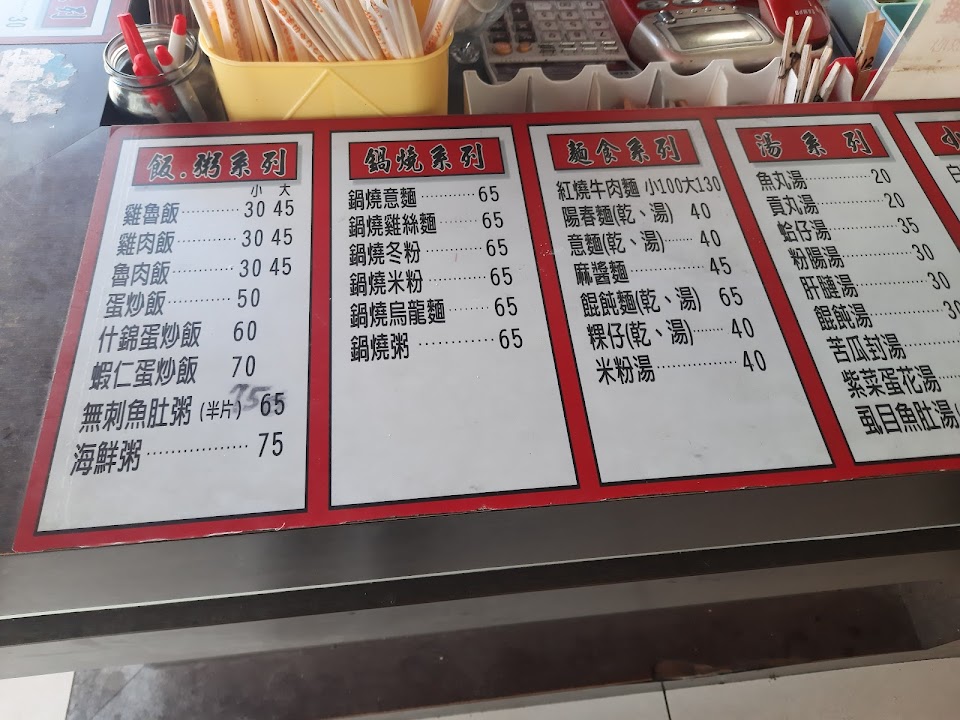 飯.粥系列
小 大
雞魯飯 ………… 30 45
雞肉飯 ………… 30 45
魯肉飯 ………… 30 45
蛋炒飯 ………… 50
什錦蛋炒飯 60
蝦仁蛋炒飯 70
無刺魚肚粥(半片) 75 65
海鮮粥 ……………… 75
鍋燒系列
鍋燒意麵 ………… 65
鍋燒雞絲麵 …… 65
鍋燒冬粉 ………… 65
鍋燒米粉 ………… 65
鍋燒烏龍麵 …… 65
鍋燒粥 …………… 65
麵食系列
紅燒牛肉麵 小100大130
陽春麵(乾、湯) 40
意麵(乾、湯) …… 40
麻醬麵 …………… 45
餛飩麵(乾、湯) 65
粿仔(乾、湯) …… 40
米粉湯 …………… 40
湯系列
魚丸湯 ………… 20
貢丸湯 ………… 20
蛤仔湯 ………… 35
粉腸湯 ………… 30
肝腱湯 ………… 30
餛飩湯 ………… 30
苦瓜封湯
紫菜蛋花湯
虱目魚肚湯